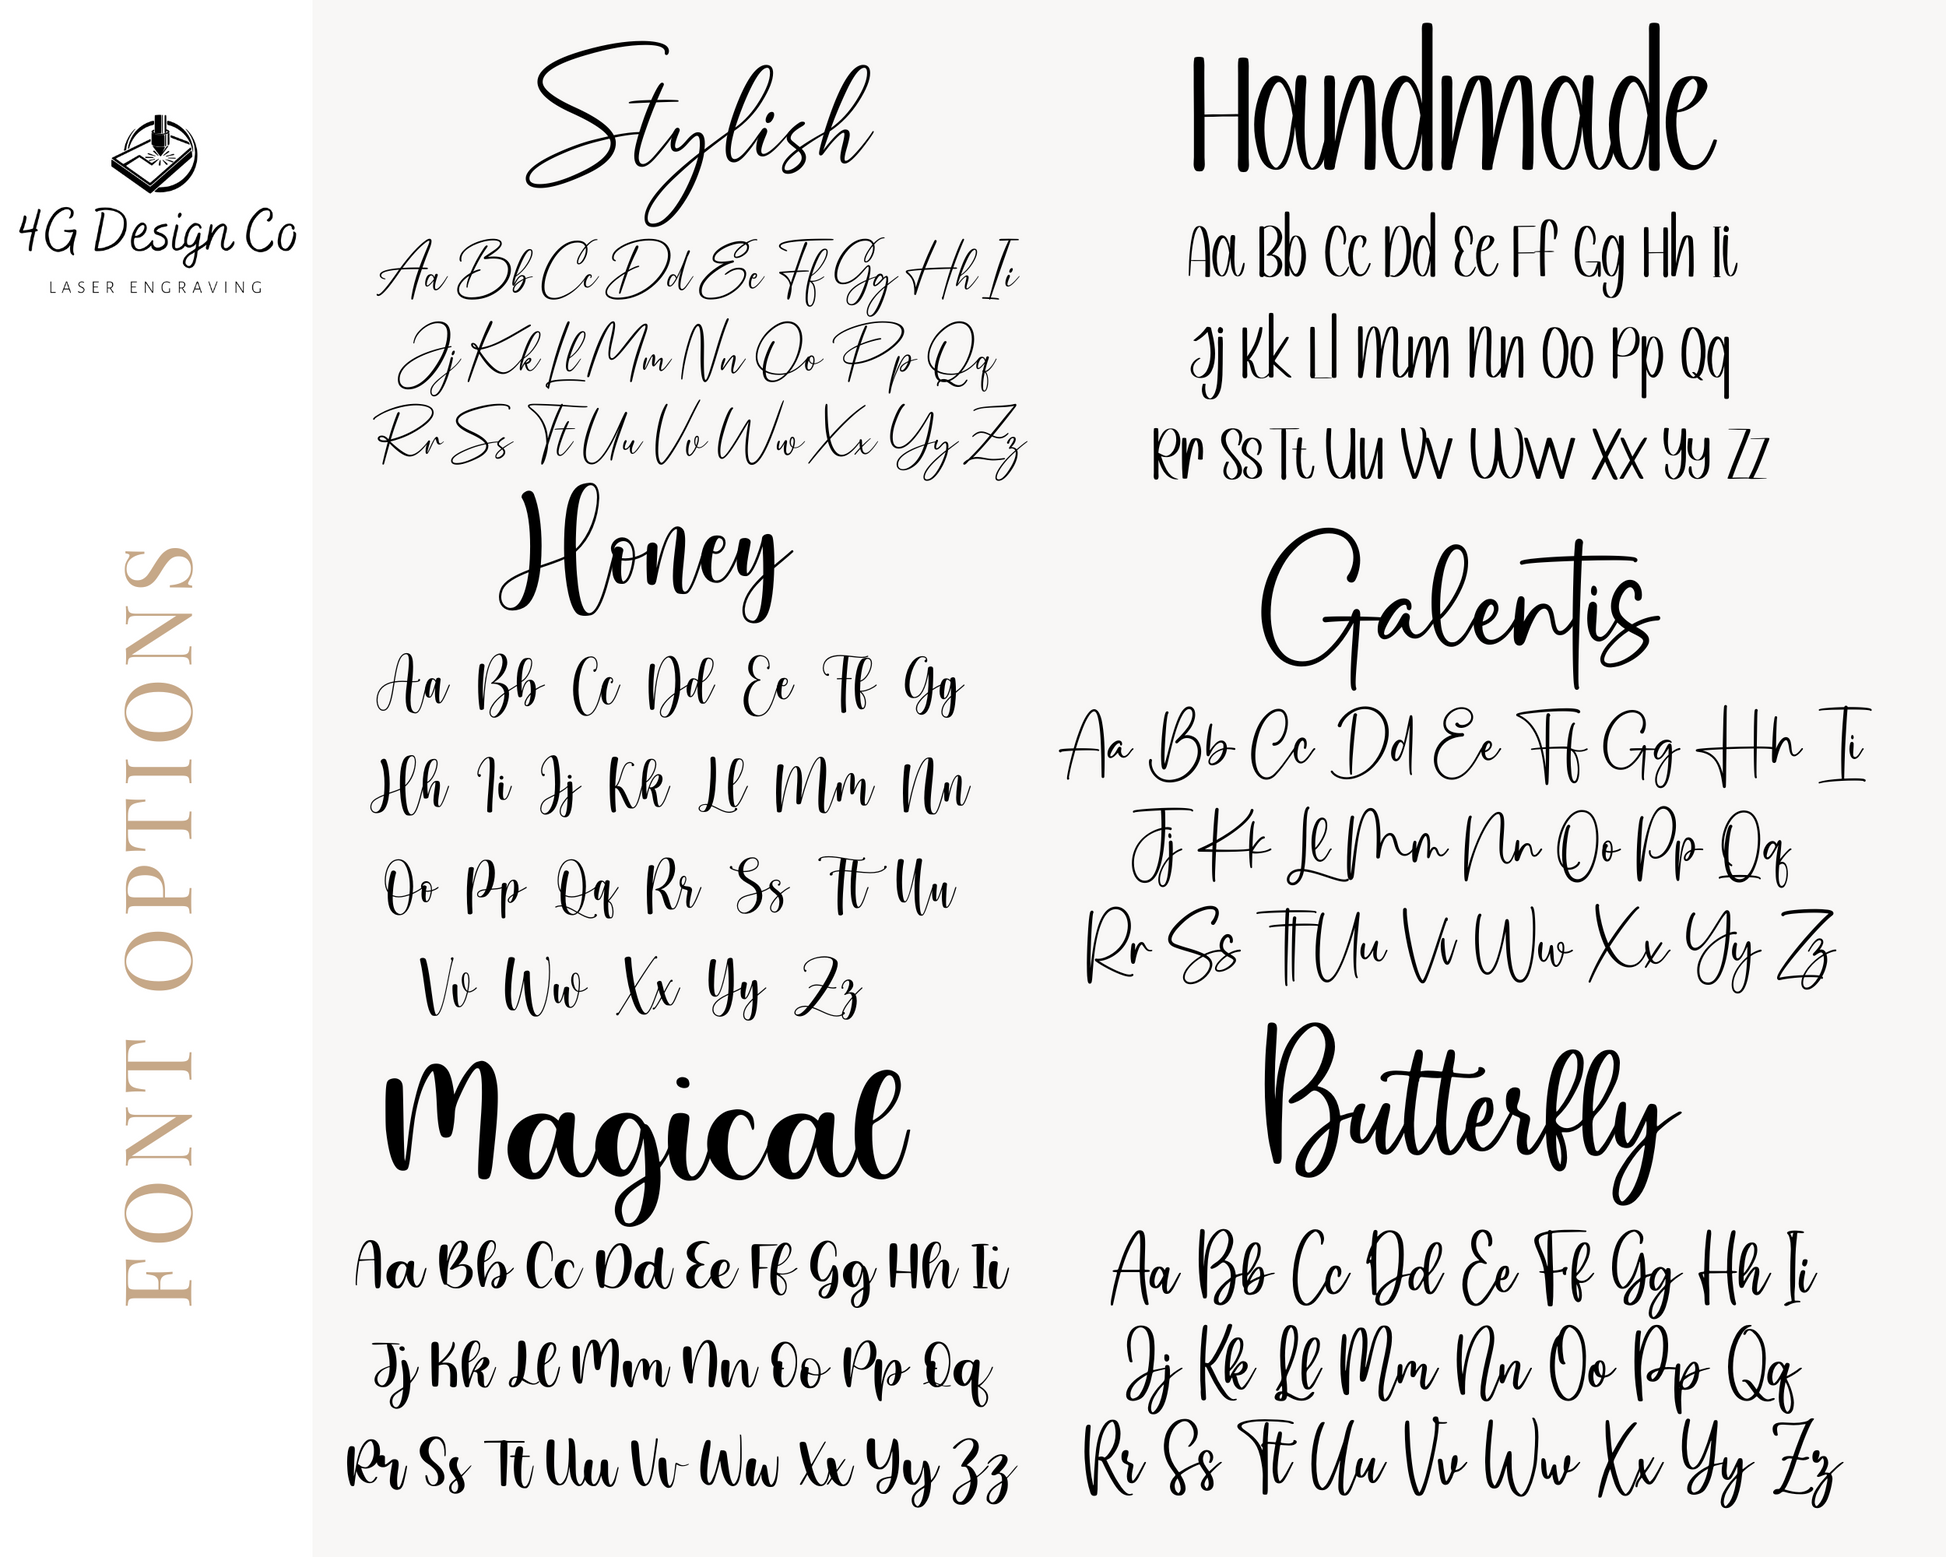 4G Design Co
LASER ENGRAVING
FONT OPTIONS
Stylish
Aa Bb Cc Dd Ee Ff Gg Hh Ii
Jj Kk Ll Mm Nn Oo Pp Qq
Rr Ss Tt Uu Vv Ww Xx Yy Zz
Honey
Aa Bb Cc Dd Ee Ff Gg
Hh Ii Jj Kk Ll Mm Nn
Oo Pp Qq Rr Ss Tt Uu
Vv Ww Xx Yy Zz
Magical
Aa Bb Cc Dd Ee Ff Gg Hh Ii
Jj Kk Ll Mm Nn Oo Pp Qq
Rr Ss Tt Uu Vv Ww Xx Yy Zz
Handmade
Aa Bb Cc Dd Ee Ff Gg Hh Ii
Jj Kk Ll Mm Nn Oo Pp Qq
Rr Ss Tt Uu Vv Ww Xx Yy Zz
Galentis
Aa Bb Cc Dd Ee Ff Gg Hh Ii
Jj Kk Ll Mm Nn Oo Pp Qq
Rr Ss Tt Uu Vv Ww Xx Yy Zz
Butterfly
Aa Bb Cc Dd Ee Ff Gg Hh Ii
Jj Kk Ll Mm Nn Oo Pp Qq
Rr Ss Tt Uu Vv Ww Xx Yy Zz